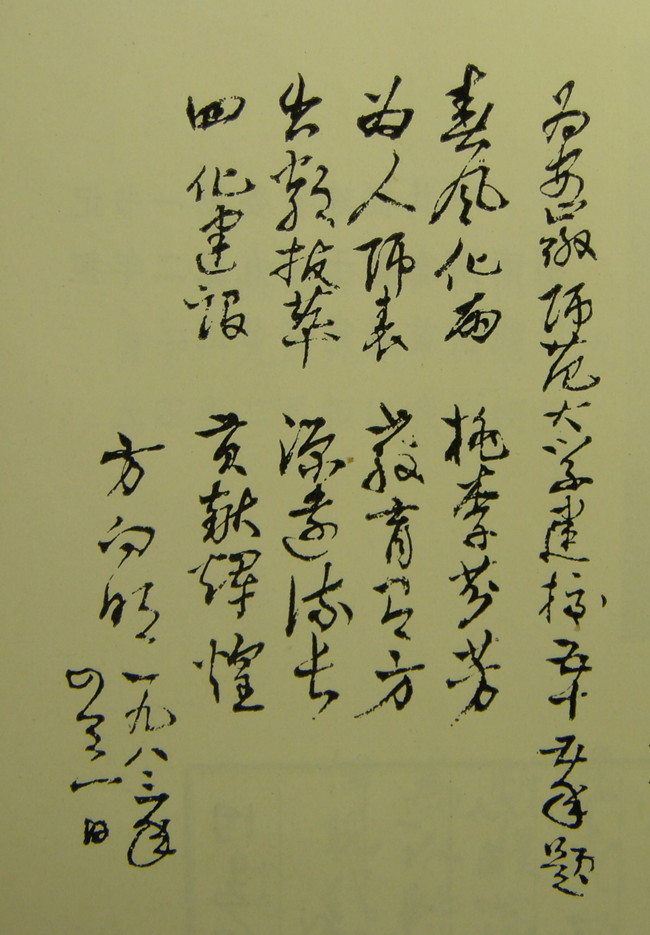 为安徽师范大学建校五十五年题
春风化雨 桃李芬芳
为人师表 教育有方
出类拔萃 源远流长
四化建设 贡献辉煌
方向明 一九八三年
四月一日